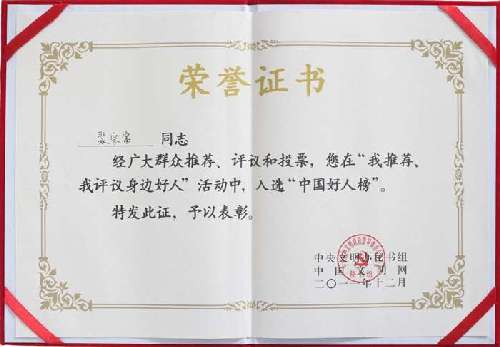 荣誉证书
同志
经广大群众推荐、评议和投票，您在“我推荐、
我评议身边好人”活动中，入选“中国好人榜”。
特发此证，予以表彰。
中央文明办秘书组
中国文明网
二〇一一年十二月